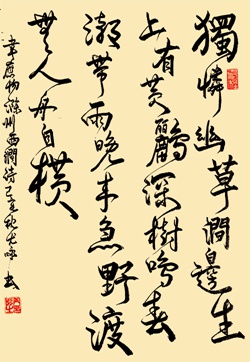 獨憐幽草澗邊生
上有黃鸝深樹鳴春
潮帶雨晚來急野渡
無人舟自橫
韋應物滁州西澗詩